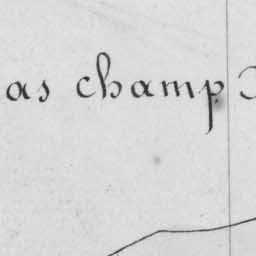 as champ